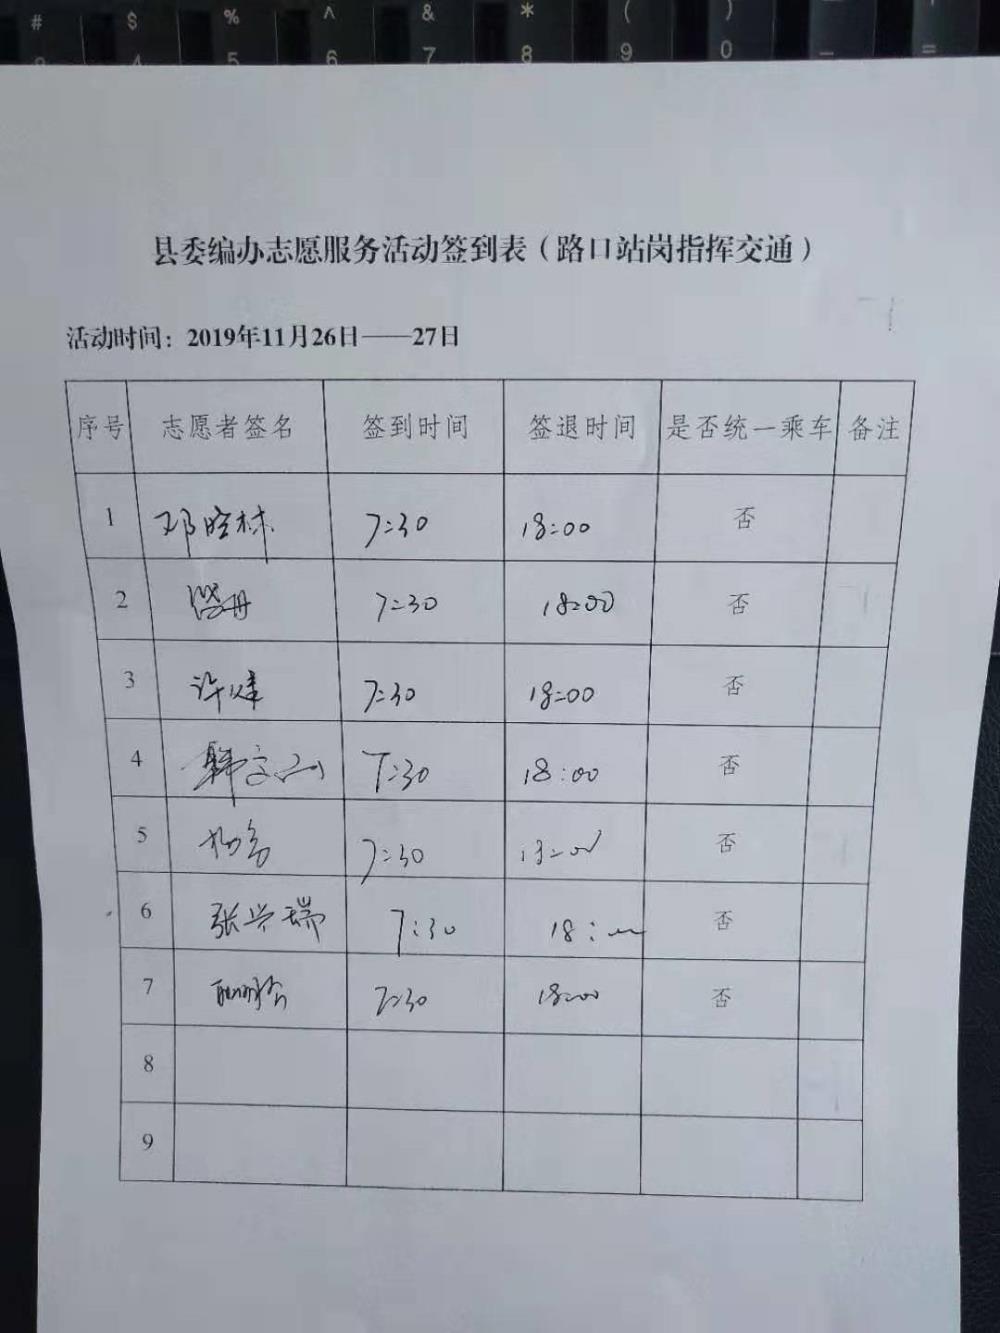 # $ % ^ & * ( )
4 5 6 7 8 9 0 — =
县委编办志愿服务活动签到表（路口站岗指挥交通）
活动时间：2019年11月26日——27日
序号 志愿者签名 签到时间 签退时间 是否统一乘车 备注
1 邓晓林 7:30 18:00 否
2 7:30 18:00 否
3 许健 7:30 18:00 否
4 7:30 18:00 否
5 7:30 18:00 否
6 张兴瑞 7:30 18: 否
7 7:30 18:00 否
8
9